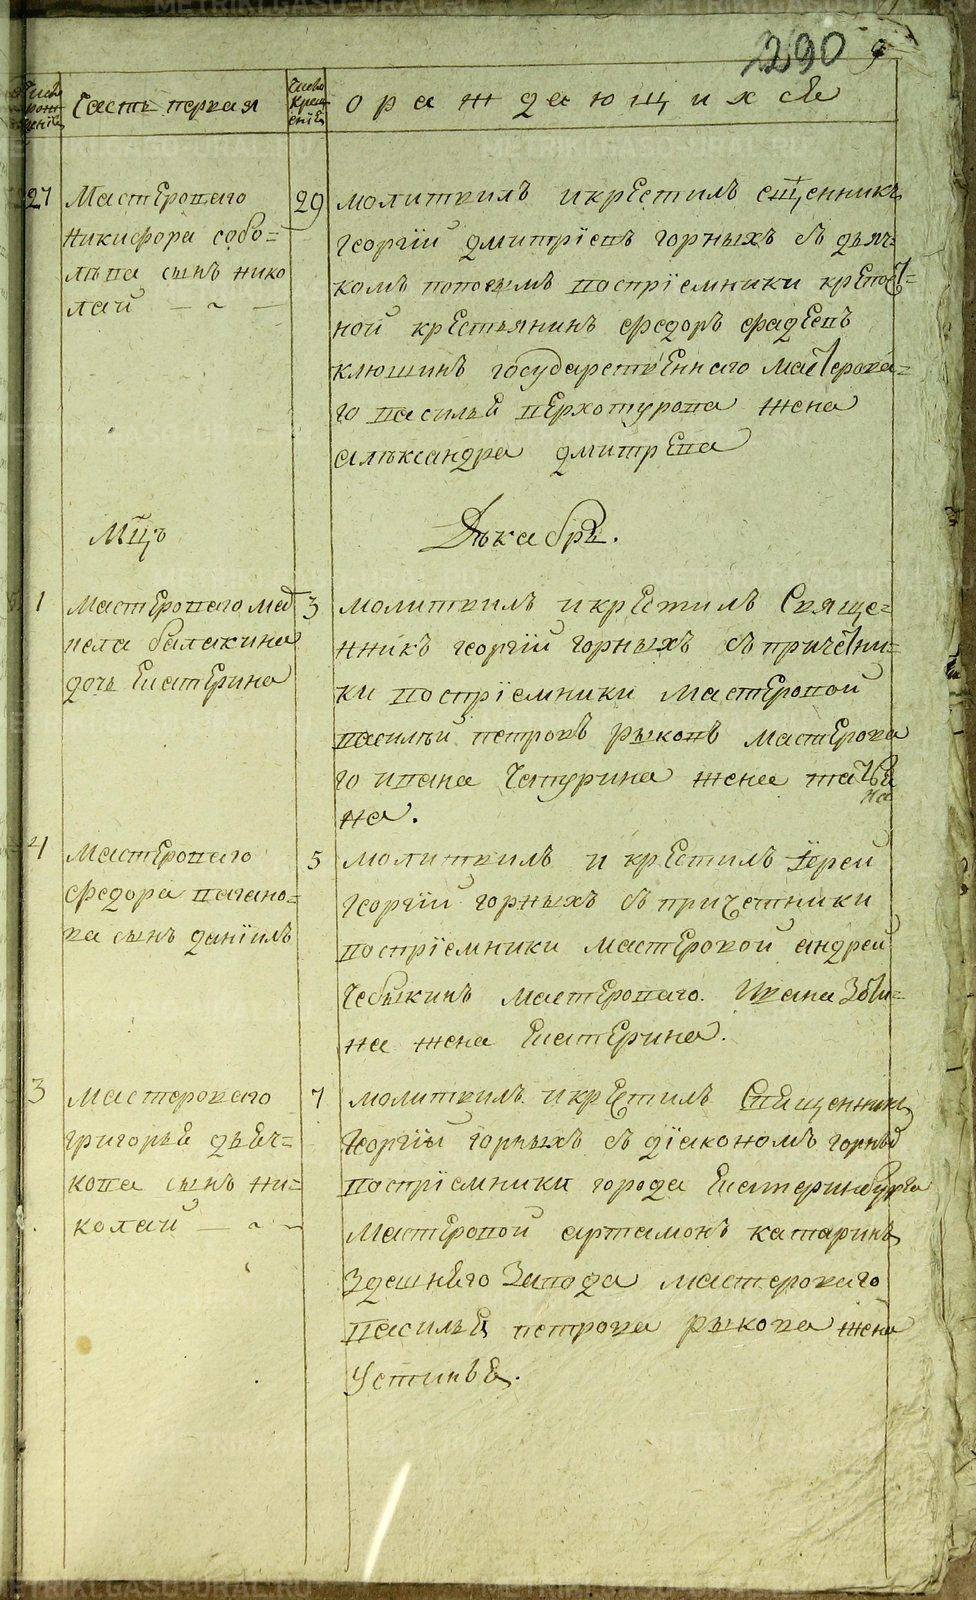 290
Число рождения Часть первая Число крещения о раждающихся
27
Мастероваго
Никифора собо=
лѣва сынъ нико
лай
29
молитвилъ и крестилъ сщенникъ
георгiи дмитрiевъ горныхъ съ дьяч=
комъ поповымъ воспрiемники крепост=
ной крестьянинъ федоръ фадеевъ
клюшинъ государственнаго мастерова=
го василья верхотурова жена
алѣксандра дмитрева
Мцъ Дѣкабрь.
1
мастероваго
балакина
дочь Екатерина
3
молитвилъ и крестилъ Свяще=
нникъ георгiй горныхъ съ причетни=
ки воспрiемники мастеровой
василѣй петровъ рыковъ мастерова
го ивана Чатурина жена татья
на
на.
4
мастероваго
федора вагано=
ва сынъ данiилъ
5
молитвилъ и крестилъ Iерей
георгiй горныхъ съ причетники
воспрiемники мастеровой андрей
чебыкинъ мастероваго. Ивана Зби=
на жена Екатерина.
3
мастероваго
григорья дьяч=
кова сынъ ни=
колай
7
молитвилъ и крестилъ Священникъ
георгiй горныхъ съ дiакономъ
воспрiемники города Екатеринбурга
мастеровой артамонъ катаринъ
здешнего Завода мастероваго
василья петрова рыкова жена
устинья.